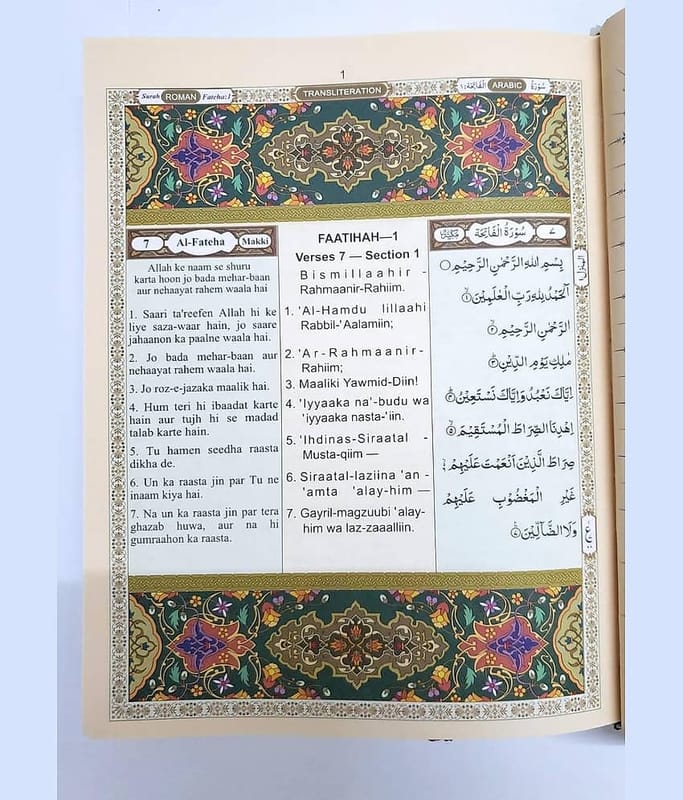 1
Surah ROMAN Fateha:1
TRANSLITERATION
الْفَاتِحَة ١ ARABIC سُوْرَةُ
7 Al-Fateha Makki
Allah ke naam se shuru
karta hoon jo bada mehar-baan
aur nehaayat rahem waala hai
1. Saari ta'reefen Allah hi ke
liye saza-waar hain, jo saare
jahaanon ka paalne waala hai.
2. Jo bada mehar-baan aur
nehaayat rahem waala hai.
3. Jo roz-e-jazaka maalik hai.
4. Hum teri hi ibaadat karte
hain aur tujh hi se madad
talab karte hain.
5. Tu hamen seedha raasta
dikha de.
6. Un ka raasta jin par Tu ne
inaam kiya hai.
7. Na un ka raasta jin par tera
ghazab huwa, aur na hi
gumraahon ka raasta.
FAATIHAH—1
Verses 7 — Section 1
Bismillaahir -
Rahmaanir-Rahiim.
1. 'Al-Hamdu lillaahi
Rabbil-'Aalamiin;
2. 'Ar-Rahmaanir-
Rahiim;
3. Maaliki Yawmid-Diin!
4. 'Iyyaaka na'-budu wa
'iyyaaka nasta-'iin.
5. 'Ihdinas-Siraatal -
Musta-qiim —
6. Siraatal-laziina 'an -
'amta 'alay-him —
7. Gayril-magzuubi 'alay-
him wa laz-zaaalliin.
٧ سُوْرَةُ الْفَاتِحَة مَكِّيَّةٌ
بِسْمِ اللهِ الرَّحْمٰنِ الرَّحِيْمِ
اَلْحَمْدُ لِلّٰهِ رَبِّ الْعٰلَمِيْنَ ۱
الرَّحْمٰنِ الرَّحِيْمِ ۲
مٰلِكِ يَوْمِ الدِّيْنِ ۳
اِيَّاكَ نَعْبُدُ وَاِيَّاكَ نَسْتَعِيْنُ ۴
اِهْدِنَا الصِّرَاطَ الْمُسْتَقِيْمَ ۵
صِرَاطَ الَّذِيْنَ اَنْعَمْتَ عَلَيْهِمْ
غَيْرِ الْمَغْضُوْبِ عَلَيْهِمْ
وَلَا الضَّآلِّيْنَ
ع